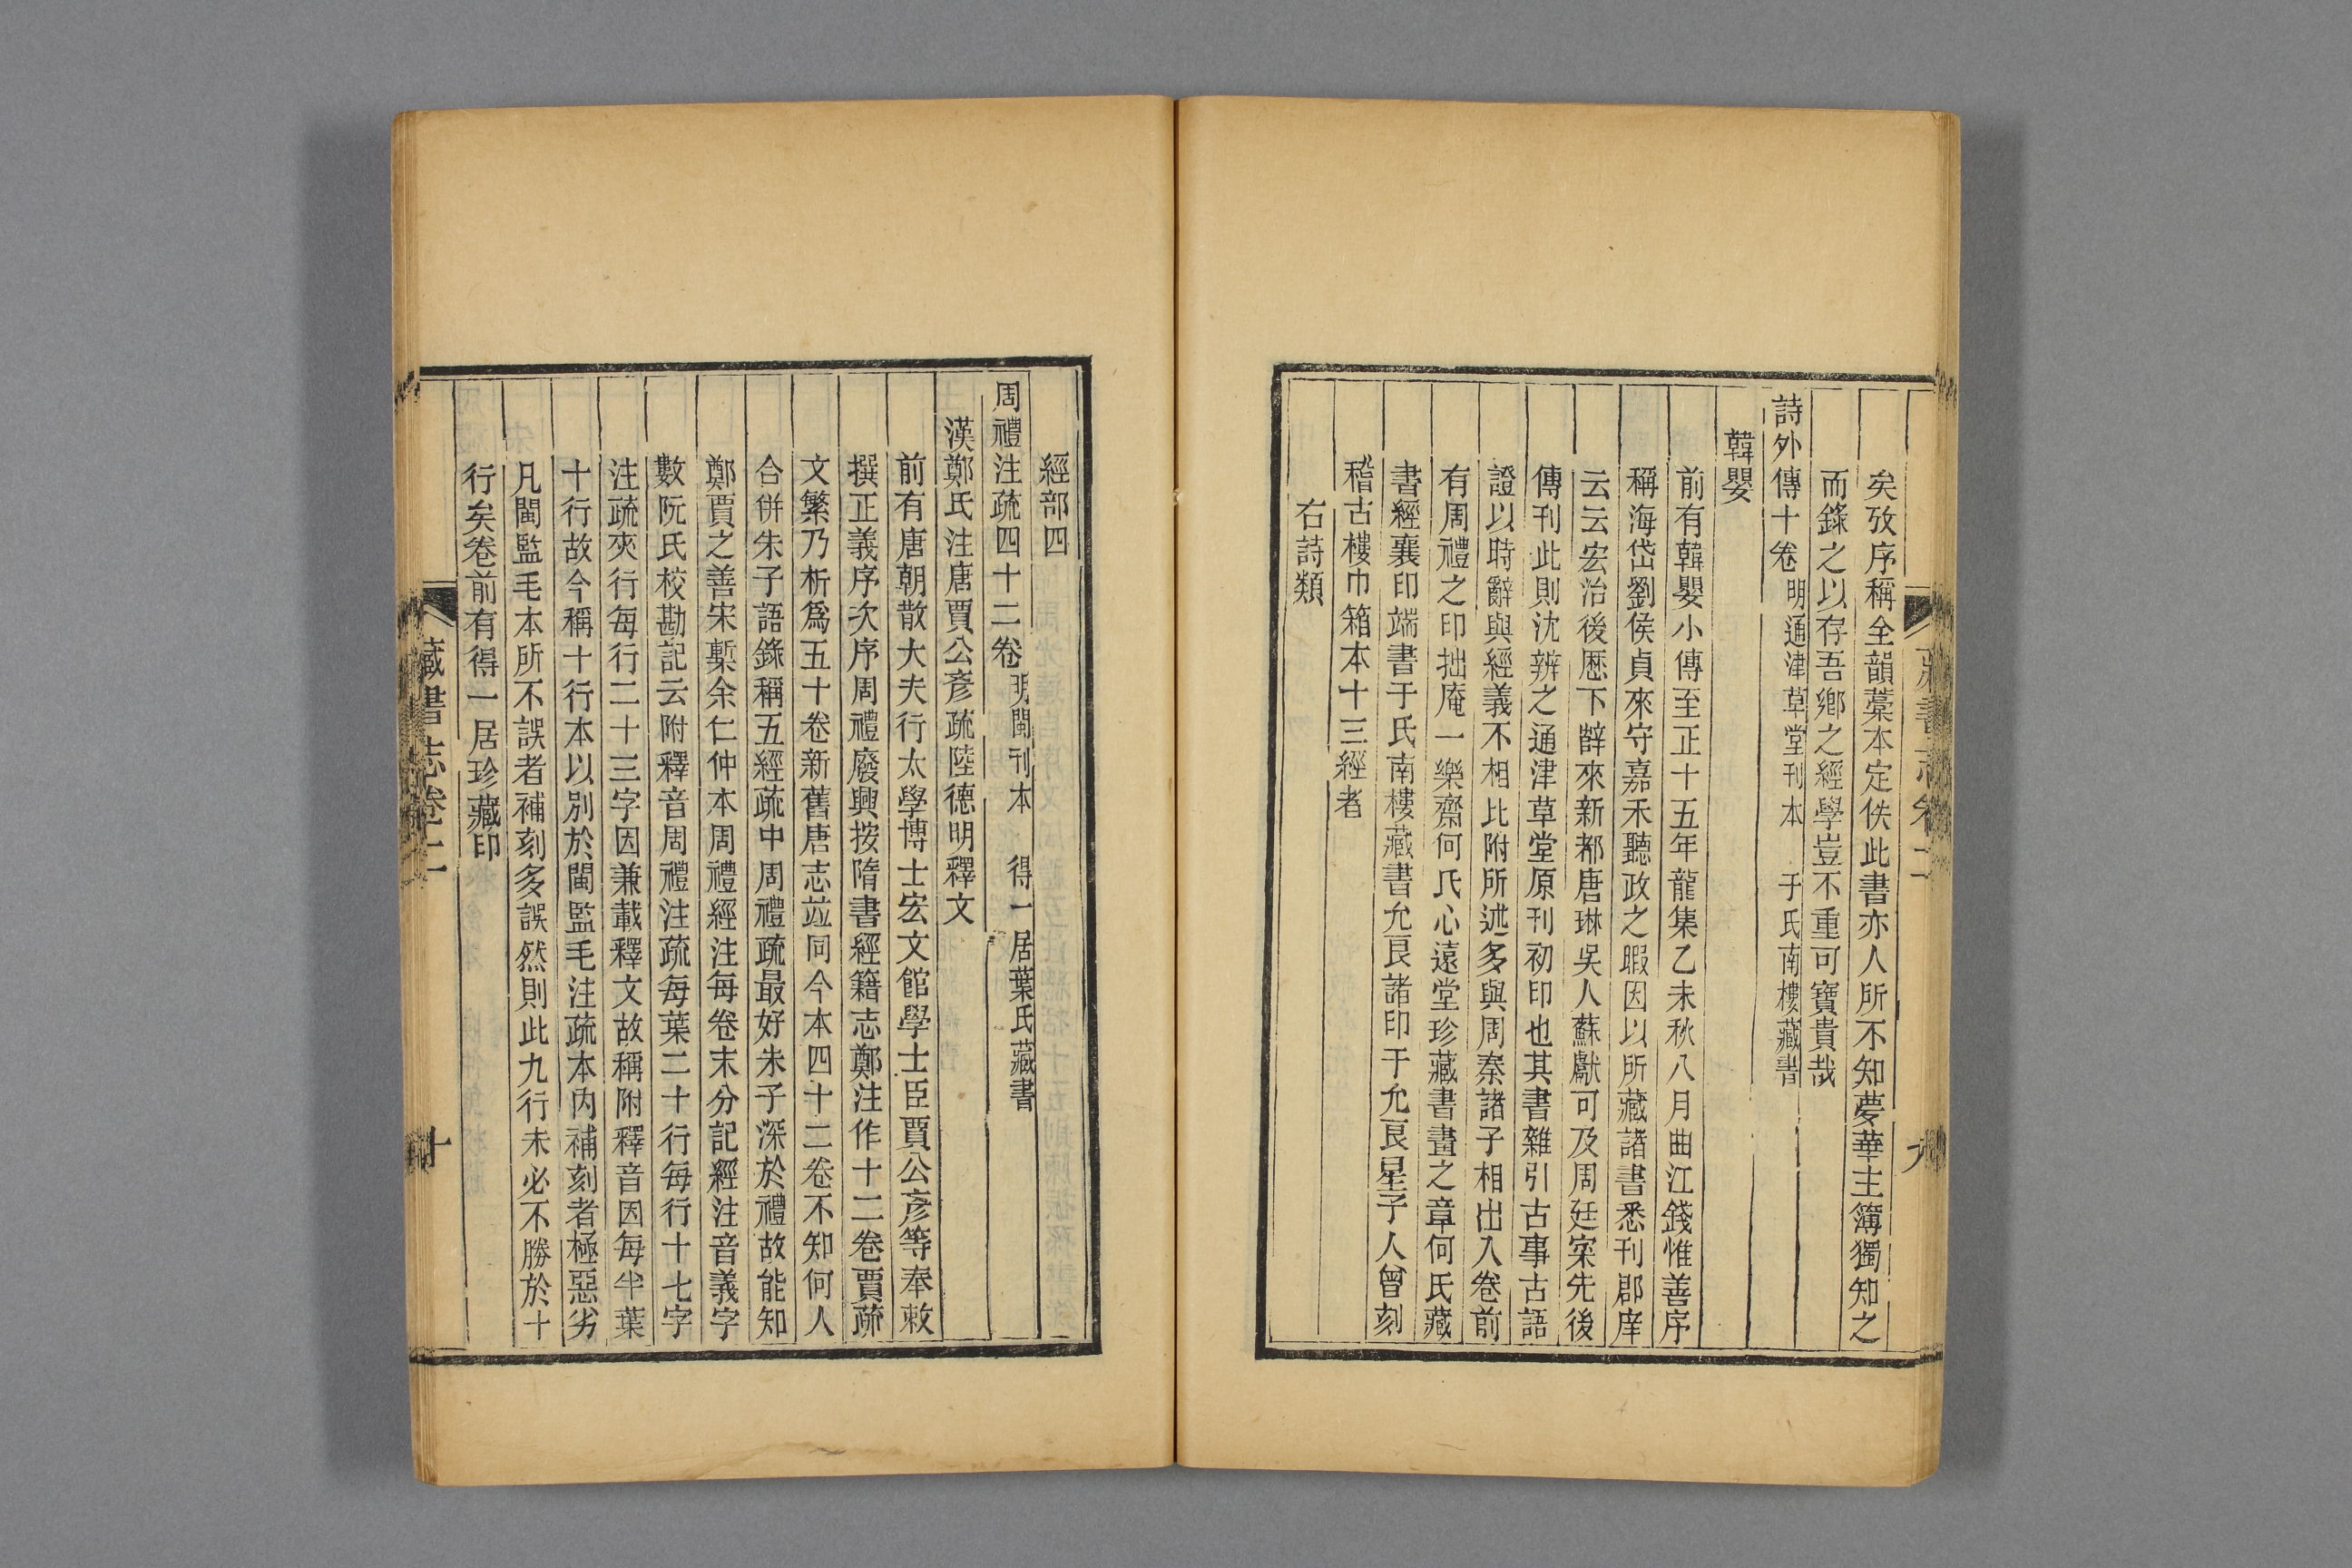 矣攷序稱全韻藁本定佚此書亦人所不知夢華主簿獨知之
而錄之以存吾鄉之經學豈不重可寶貴哉
詩外傳十卷 明通津草堂刊本 于氏南樓藏書
韓嬰
前有韓嬰小傳至正十五年龍集乙未秋八月曲江錢惟善序
稱海岱劉侯貞來守嘉禾聽政之暇因以所藏諸書悉刊郡庠
云云宏治後厯下薛來新都唐琳吳人蘇獻可及周廷寀先後
傳刊此則沈辨之通津草堂原刊初印也其書雜引古事古語
證以時辭與經義不相比附所述多與周秦諸子相出入卷前
有周禮之印拙庵一樂齋何氏心遠堂珍藏書畫之章何氏藏
書經襄印端書于氏南樓藏書允艮諸印于允艮星子人曾刻
稽古樓巾箱本十三經者
右詩類
藏書志卷二
九
經部四
周禮注疏四十二卷 明閩刊本 得一居葉氏藏書
漢鄭氏注唐賈公彥疏陸德明釋文
前有唐朝散大夫行太學博士宏文館學士臣賈公彥等奉敕
撰正義序次序周禮廢興按隋書經籍志鄭注作十二卷賈疏
文繁乃析爲五十卷新舊唐志竝同今本四十二卷不知何人
合併朱子語錄稱五經疏中周禮疏最好朱子深於禮故能知
鄭賈之善宋槧余仁仲本周禮經注每卷末分記經注音義字
數阮氏校勘記云附釋音周禮注疏每葉二十行每行十七字
注疏夾行每行二十三字因兼載釋文故稱附釋音因每半葉
十行故今稱十行本以別於閩監毛注疏本內補刻者極惡劣
凡閩監毛本所不誤者補刻多誤然則此九行未必不勝於十
行矣卷前有得一居珍藏印
藏書志卷二
十